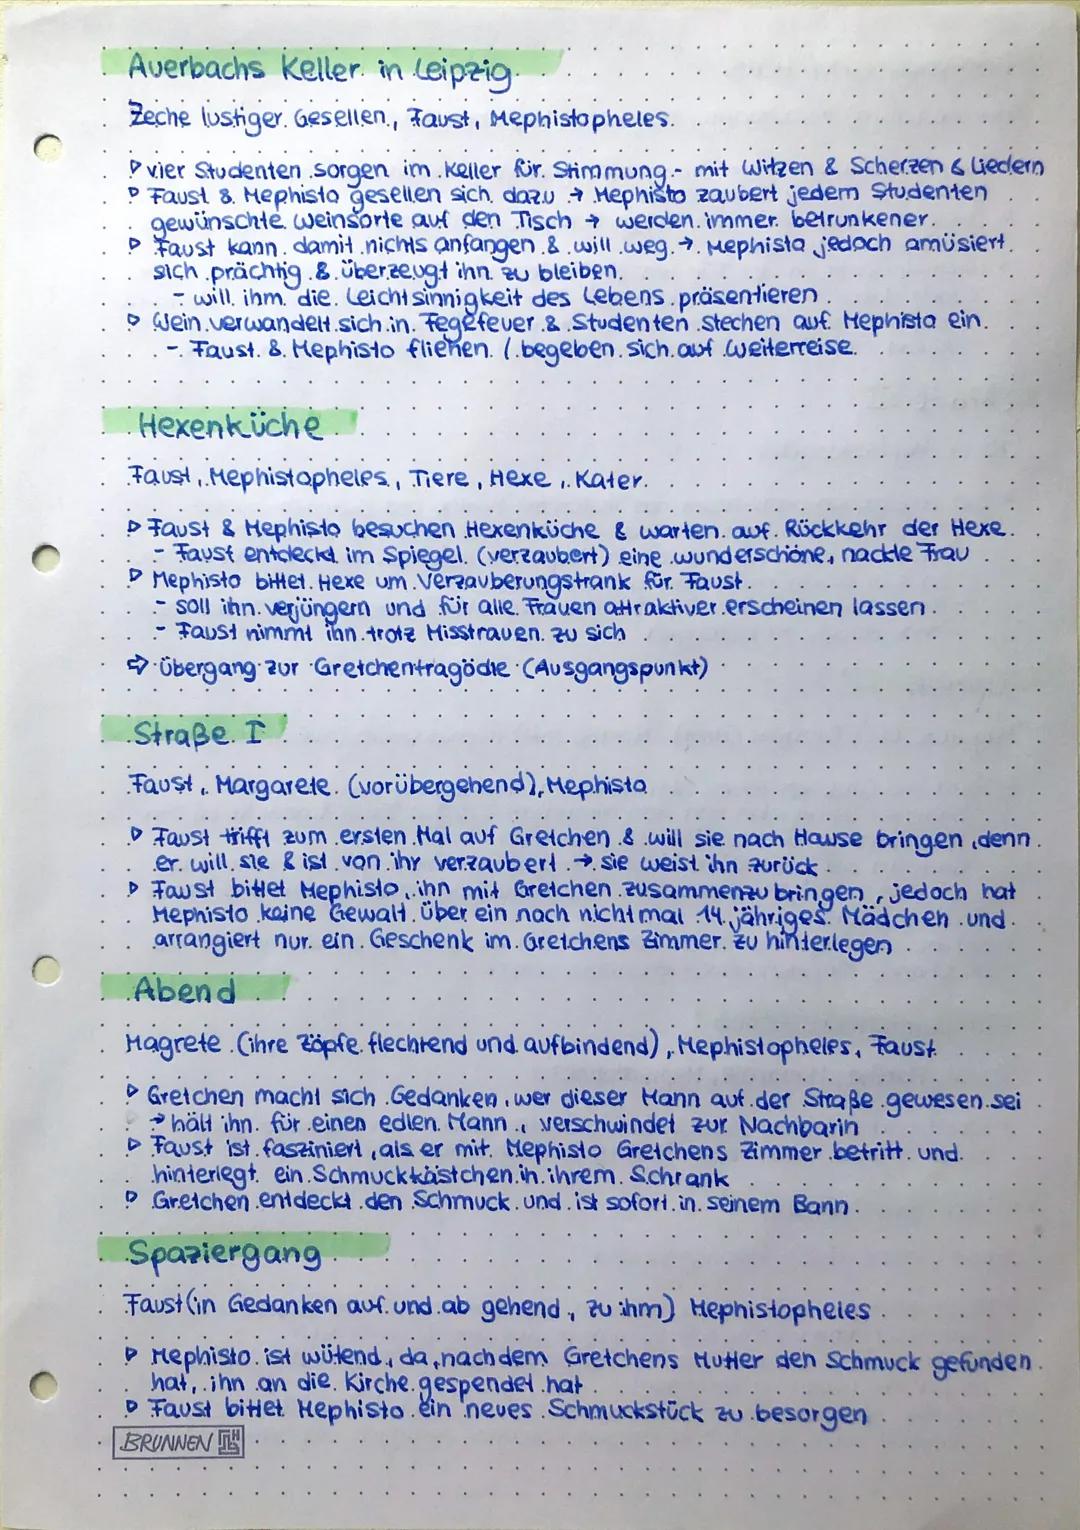 Auerbachs Keller in Leipzig
Zeche lustiger Gesellen, Faust, Mephistopheles.
▷ vier Studenten sorgen im Keller für Stimmung - mit Witzen & Scherzen & Liedern
▷ Faust & Mephisto gesellen sich dazu → Mephisto zaubert jedem Studenten
gewünschte Weinsorte auf den Tisch → werden immer betrunkener.
▷ Faust kann damit nichts anfangen & will weg → Mephisto jedoch amüsiert
sich prächtig & überzeugt ihn zu bleiben.
- will ihm die Leichtsinnigkeit des Lebens präsentieren
▷ Wein verwandelt sich in Fegefeuer & Studenten stechen auf Mephisto ein.
- Faust & Mephisto fliehen / begeben sich auf Weiterreise.
Hexenküche
Faust, Mephistopheles, Tiere, Hexe, Kater.
▷ Faust & Mephisto besuchen Hexenküche & warten auf Rückkehr der Hexe.
- Faust entdeckt im Spiegel (verzaubert) eine wunderschöne, nackte Frau
▷ Mephisto bittet Hexe um Verzauberungstrank für Faust
- soll ihn verjüngern und für alle Frauen attraktiver erscheinen lassen
- Faust nimmt ihn trotz Misstrauen zu sich
⇨ Übergang zur Gretchentragödie (Ausgangspunkt)
Straße I
Faust, Margarete (vorübergehend), Mephisto
▷ Faust trifft zum ersten Mal auf Gretchen & will sie nach Hause bringen, denn
er will sie & ist von ihr verzaubert → sie weist ihn zurück
▷ Faust bittet Mephisto, ihn mit Gretchen zusammenzubringen, jedoch hat
Mephisto keine Gewalt über ein noch nicht mal 14 jähriges Mädchen und
arrangiert nur ein Geschenk im Gretchens Zimmer zu hinterlegen
Abend
Magrete (ihre Zöpfe flechtend und aufbindend), Mephistopheles, Faust
▷ Gretchen macht sich Gedanken, wer dieser Mann auf der Straße gewesen sei
→ hält ihn für einen edlen Mann, verschwindet zur Nachbarin
▷ Faust ist fasziniert, als er mit Mephisto Gretchens Zimmer betritt und
hinterlegt ein Schmuckkästchen in ihrem Schrank
▷ Gretchen entdeckt den Schmuck und ist sofort in seinem Bann.
Spaziergang
Faust (in Gedanken auf und ab gehend, zu ihm) Mephistopheles
▷ Mephisto ist wütend, da, nachdem Gretchens Mutter den Schmuck gefunden
hat, ihn an die Kirche gespendet hat
▷ Faust bittet Mephisto ein neues Schmuckstück zu besorgen
BRUNNEN